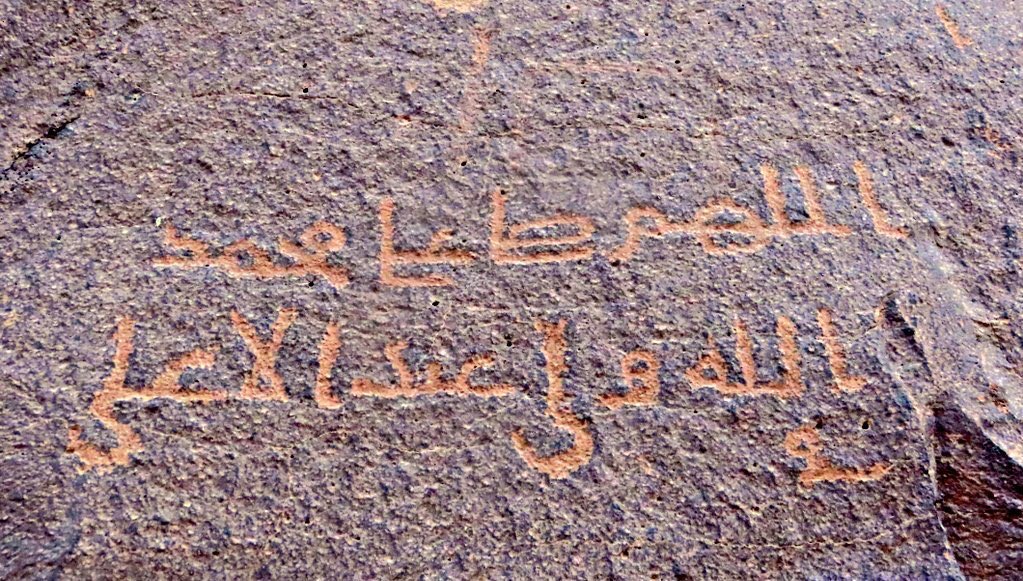 اللهم صل على محمد
الله ولي عبد الاعلى